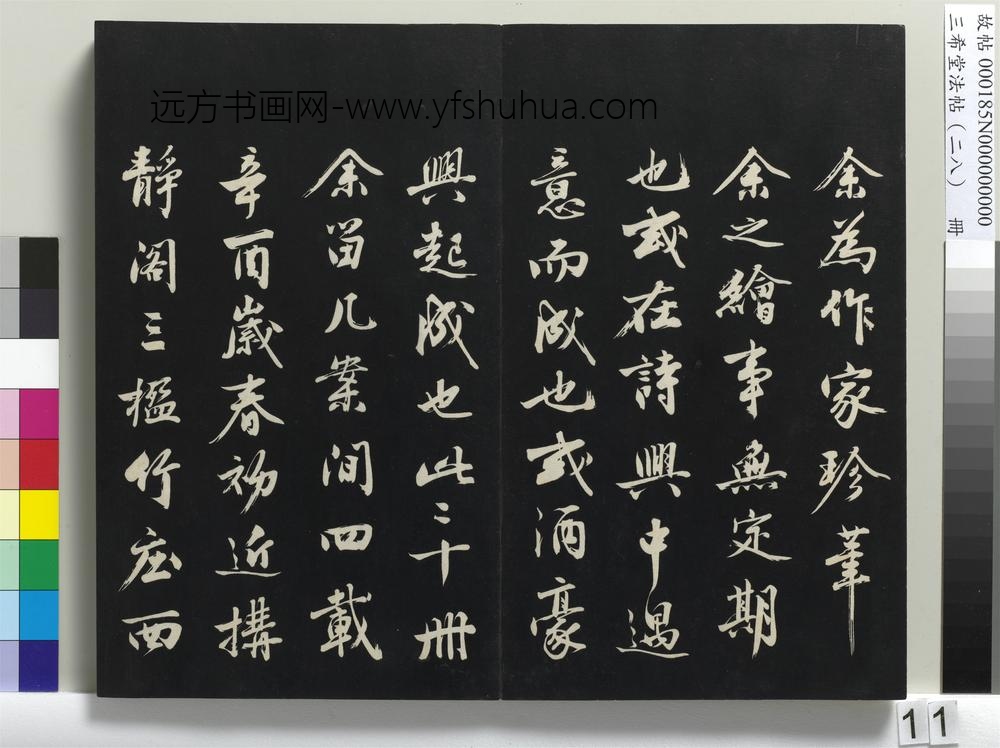 余為作家珍華
余之繪事無定期
也或在詩興中遇
意而成也或酒豪
興起成也此二十冊
余留几案間四載
辛酉歲春初近搆
靜閣三楹竹庄西
远方书画网-www.yfshuhua.com
故帖 000185N000000000
三希堂法帖(二八) 冊
11